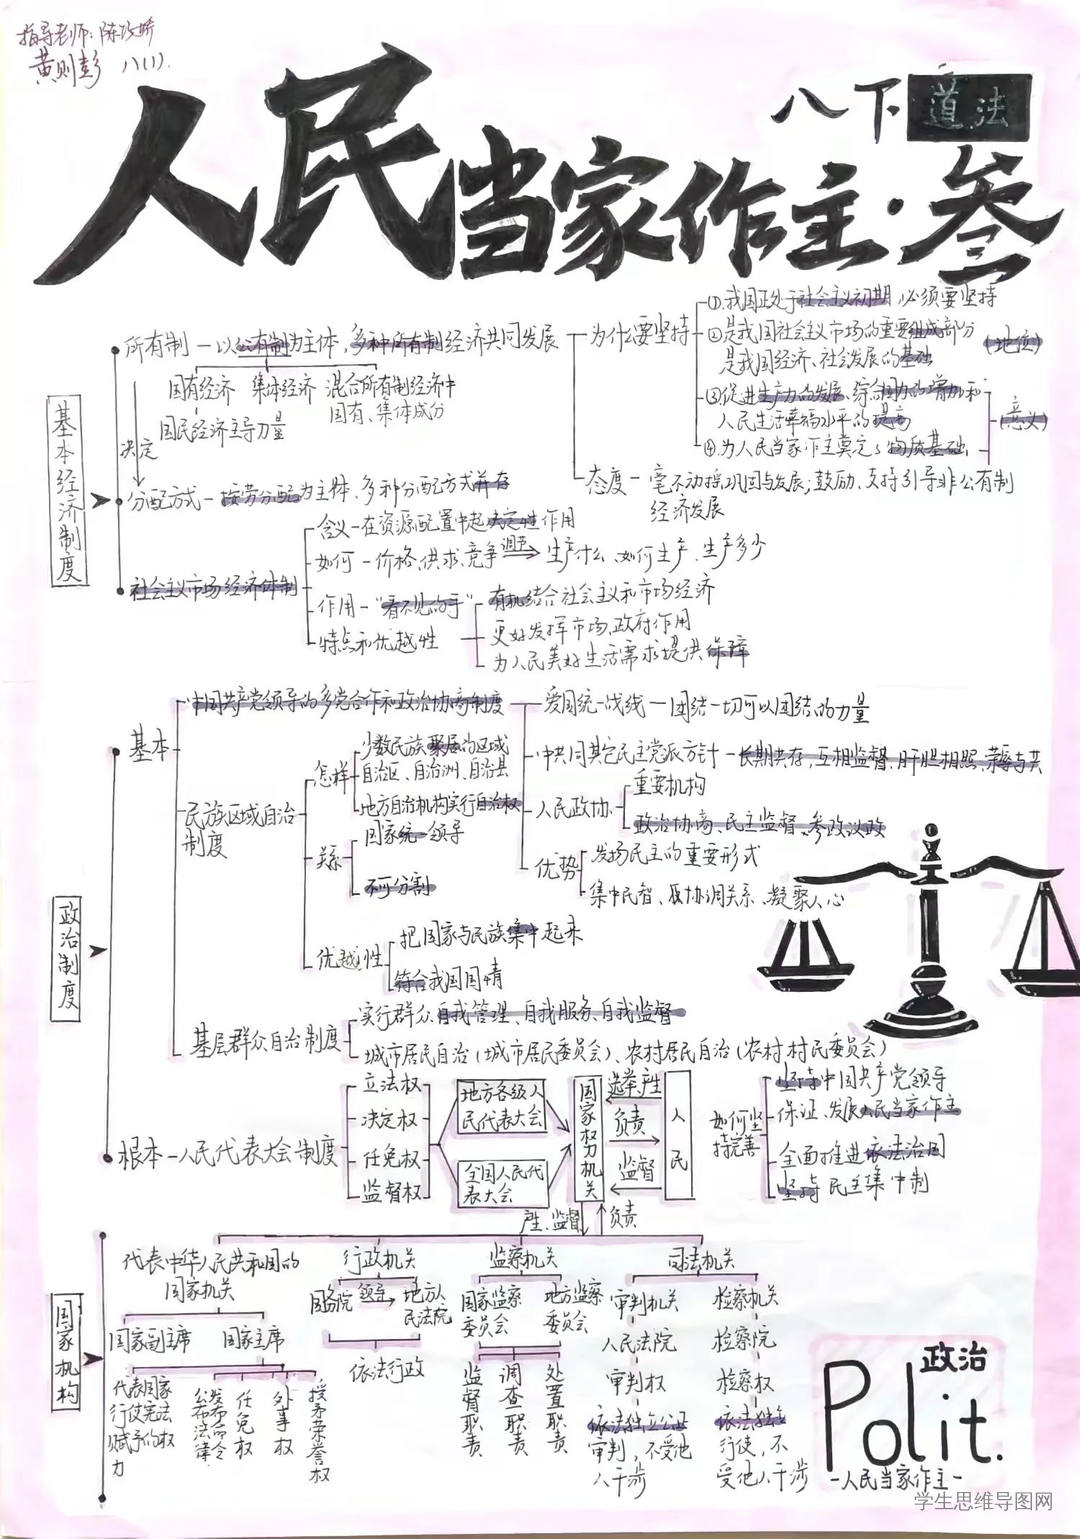 指导老师:陈巧娇
黄则彭 八(1).
八下 道法
人民当家作主·叁
基本经济制度
所有制—以公有制为主体,多种所有制经济共同发展
国有经济 集体经济 混合所有制经济中
国有、集体成分
国民经济主导力量
决定
分配方式—按劳分配为主体、多种分配方式并存
为什么要坚持
①.我国正处于社会主义初期 必须要坚持
②是我国社会主义市场的重要组成部分
是我国经济、社会发展的基础
(地位)
③促进生产力的发展、综合国力的增加和
人民生活幸福水平的提高
④.为人民当家作主奠定了物质基础.
(意义)
态度—毫不动摇巩固与发展;鼓励、支持引导非公有制
经济发展
社会主义市场经济体制
含义—在资源配置中起决定性作用
如何—价格、供求、竞争 调节 生产什么、如何生产、生产多少
作用—"看不见的手"
特点和优越性
有机结合社会主义和市场经济
更好发挥市场、政府作用
为人民美好生活需求提供保障
政治制度
基本
中国共产党领导的多党合作和政治协商制度
爱国统一战线—团结一切可以团结的力量
中共同其它民主党派方针—长期共存,互相监督,肝胆相照、荣辱与共
人民政协
重要机构
政治协商、民主监督、参政议政
优势
发扬民主的重要形式
集中民智、及协调关系、凝聚人心
民族区域自治
制度
怎样
少数民族聚居的区域
自治区、自治洲、自治县
地方自治机构实行自治权
关系
国家统一领导
不可分割
优越性
把国家与民族集中起来
符合我国国情
基层群众自治制度
实行群众自我管理、自我服务、自我监督
城市居民自治(城市居民委员会)、农村居民自治(农村村民委员会)
根本—人民代表大会制度
立法权
决定权
任免权
监督权
地方各级人
民代表大会
全国人民代
表大会
国家权力机关
选举产生
负责
监督
人民
如何坚
持完善
坚持中国共产党领导
保证、发展人民当家作主
全面推进依法治国
坚持民主集中制
产生、监督
负责
国家机构
代表中华人民共和国的
国家机关
国家副主席 国家主席
代表国家
行使宪法
赋予的权
力
公布法律
发布命令
任免权
外事权
授予荣誉权
行政机关
国务院 领导 地方人
民法院
依法行政
监察机关
国家监察
委员会
地方监察
委员会
监督职责
调查职责
处置职责
司法机关
审判机关
人民法院
审判权
依法独立公正
审判,不受他
人干涉
检察机关
检察院
检察权
依法独立
行使,不
受他人干涉
政治
Polit.
—人民当家作主—
学生思维导图网